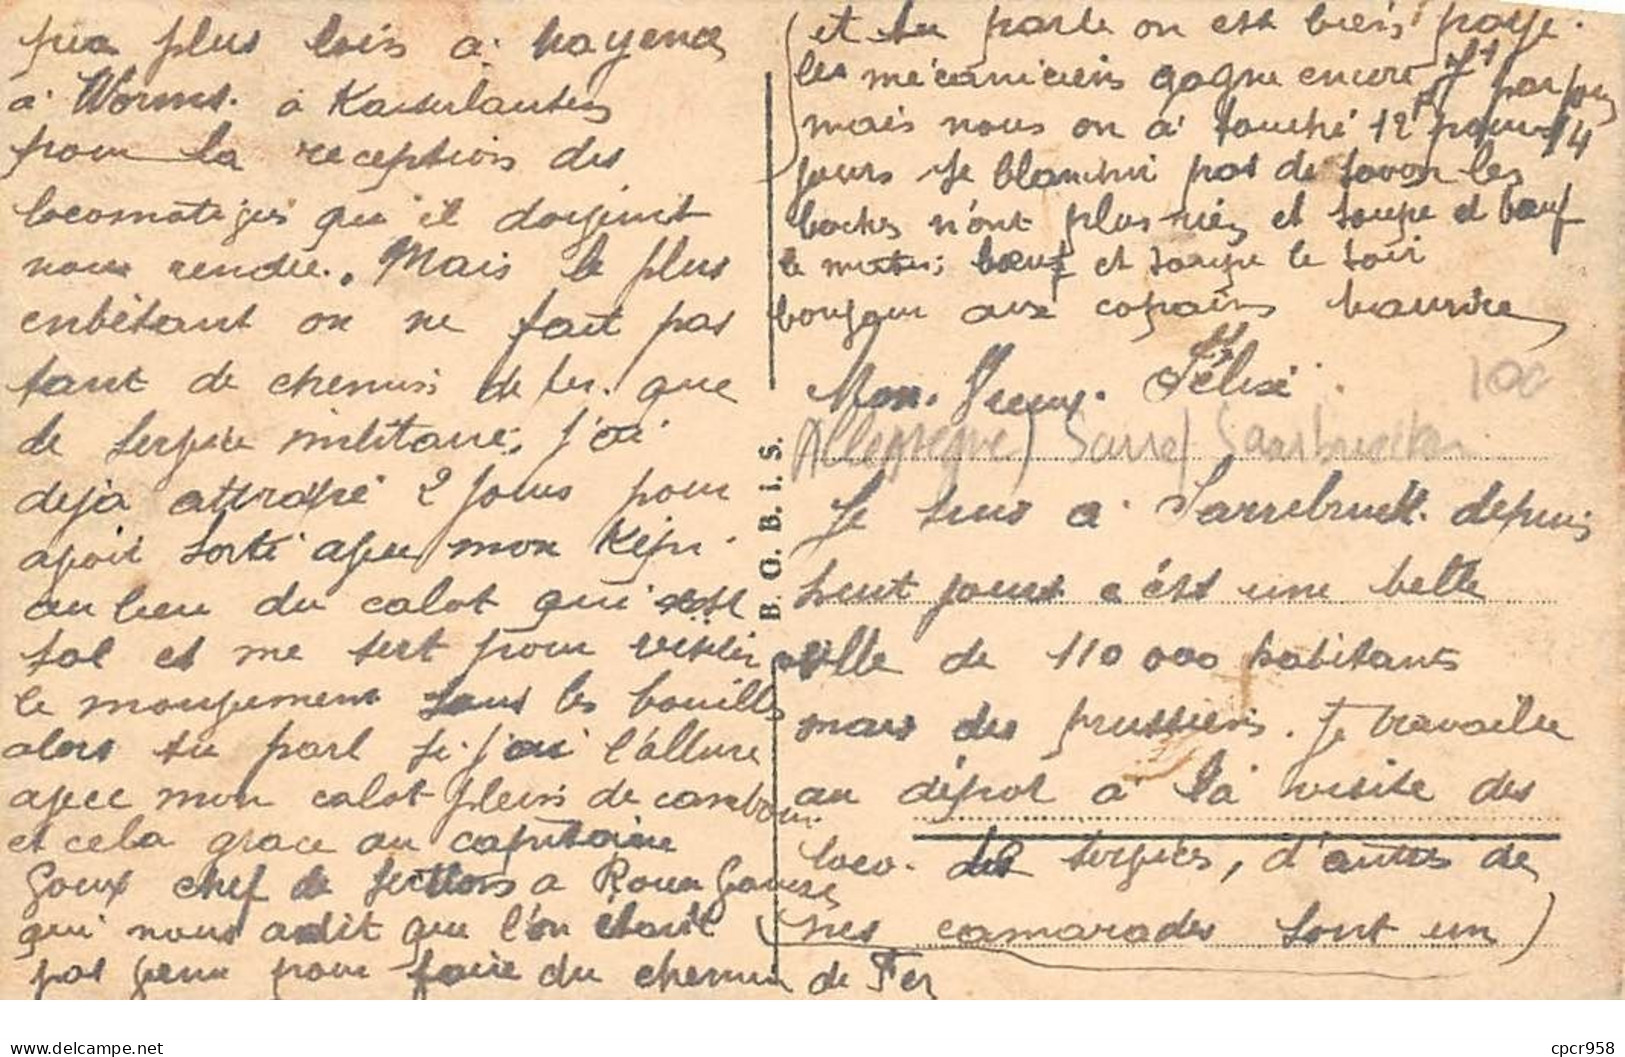 Mon. Vieux. Félix
Allemagne) Sarre/ Saarbrucken
100
Je suis a Sarrebruck depuis
huit jours c'est une belle
ville de 110 000 habitants
mais des prussiens. Je travaille
au dépot a la visite des
loco. des services, d'autres de
mes camarades sont un
peu plus loin a mayence
a Worms. a Kaiserlautern
pour la reception des
locomotives qu'il doivent
nous rendre. Mais le plus
enbètant on ne fait pas
tant de chemin de fer. que
de service militaire, j'ai
deja attrapé 2 jours pour
avoir sorti avec mon Képi
au lieu du calot qui est
sal et me sert pour visiter
le mouvement sous les bouilles
alors tu parl si j'ai l'allure
avec mon calot plein de cambouis
et cela grace au capitaine
Goux chef de section a Rouen
qui nous a dit que l'on etait
pas venu pour faire du chemin de Fer
et tu parle on est bien paye.
les mécaniciens gagne encore par jour
mais nous on a touché 12 pour 14
jours Je blanchi pas de savon les
boches n'ont plus rien et soupe et bœuf
le matin bœuf et soupe le soir
bonjour aux copains Maurice
B. O. B. I. S.
Delcampe.net
cpcr958